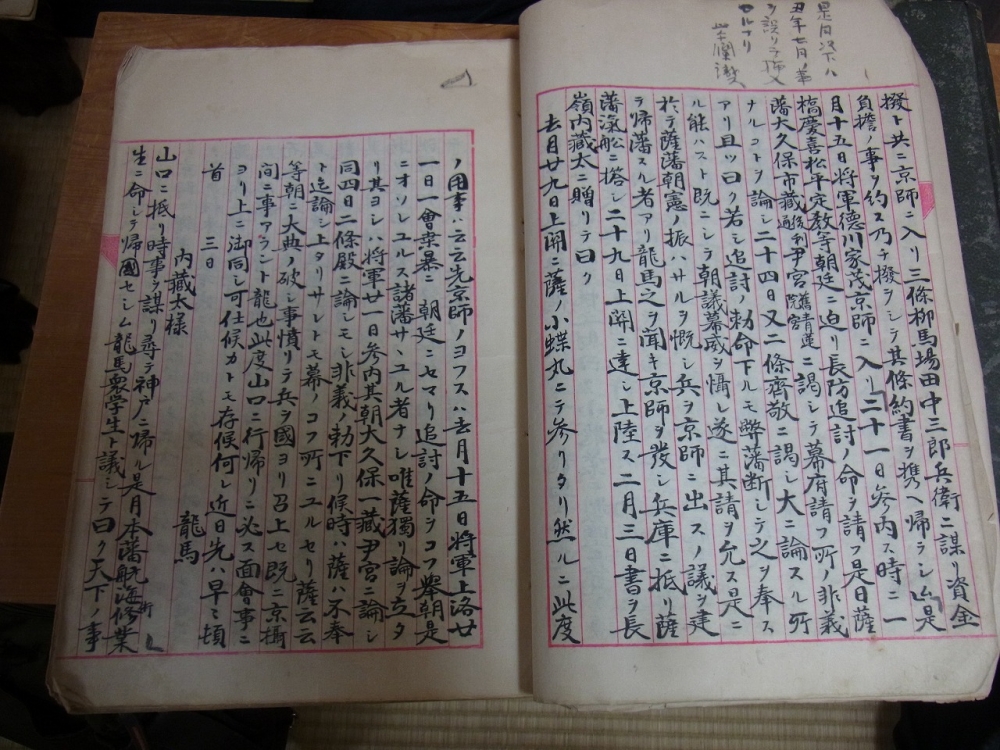 是月以下ハ
丑年七月ノ事
ヲ誤リテ
セルナリ
撥ト共ニ京師ニ入リ三條柳馬場田中三郎兵衛ニ謀リ資金
負擔ノ事ヲ約ス乃チ撥ヲシテ其條約書ヲ携ヘ帰ラシム是
月十五日将軍徳川家茂京師ニ入リ二十一日参内ス時ニ一
橋慶喜松平定敬等朝廷ニ迫リ長防追討ノ命ヲ請フ是日薩
藩大久保市蔵後利通尹宮舊青蓮院宮ニ謁シテ幕府請フ所ノ非義
ナルコトヲ論シ二十四日又二條齊敬ニ謁シ大ニ論スル所
アリ且ツ曰ク若シ追討ノ勅命下ルモ弊藩断シテ之ヲ奉ス
ル能ハスト既ニシテ朝議幕威ヲ憚レ遂ニ其請ヲ允ス是ニ
於テ薩藩朝憲ノ振ハサルヲ慨シ兵ヲ京師ニ出スノ議ヲ建
テ帰藩スル者アリ龍馬之ヲ聞キ京師ヲ發シ兵庫ニ抵リ薩
藩滊舩ニ搭シ二十九日上関ニ達シ上陸ス二月三日書ヲ長
嶺内藏太ニ贈リテ曰ク
去月廿九日上関ニ薩ノ小蝶丸ニテ参リタリ然ルニ此度
ノ用事ハ云云先京師ノヨフスハ去月十五日将軍上洛廿
一日一會桒暴ニ朝廷ニセマリ追討ノ命ヲコフ舉朝是
ニオソレユルス諸藩サヽユル者ナシ唯薩獨リ論ヲ立タ
リ其ヨシハ将軍廿一日参内其朝大久保一蔵尹宮ニ論シ
同四日二條殿ニ論シモシ非義ノ勅下リ候時ハ薩ハ不奉
ト迄論シ上タリサレトモ幕ノコフ所ニユルセリ薩云云
等朝ニ大典ノ破シ事憤リテ兵ヲ國ヨリ召上セ既ニ京摂
間ニ事アラント龍也此度山口ニ行帰リニ必ス面會事ニ
ヨリ上ニ御同シ可仕候カトモ存候何レ近日先ハ早々頓
首　三日
龍馬
内藏太様
山口ニ抵リ時事ヲ謀リ尋テ神戸ニ帰ル是月本藩航海術修業
生ニ命シテ帰國セシム龍馬衆学生ト議シテ曰ク天下ノ事